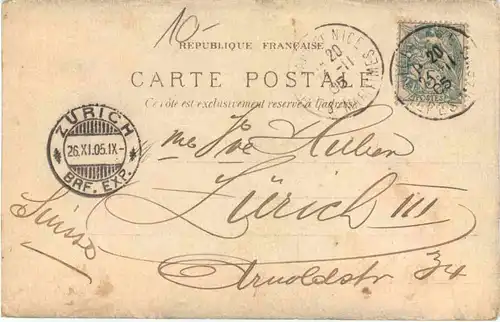 10-
RÉPUBLIQUE FRANÇAISE
CARTE POSTALE
Ce côté est exclusivement réservé à l'adresse
NICE
20
11
05
20
ZÜRICH
26.XI.05.IX-
BRF. EXP.
Huben
Zürich III
Suisse
Arnoldstr 34